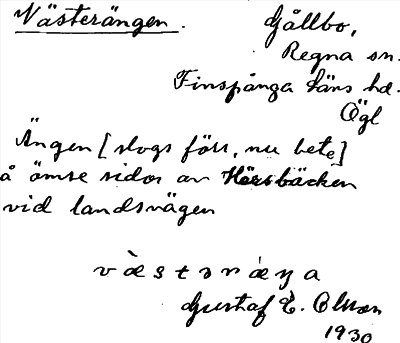 Västerängen.
Gållbo,
Regna sn.
Finspånga läns hd.
Ögl
Ängen [slogs förr, nu bete]
å ömse sidor av Horsbäcken
vid landsvägen
væ̀stəræŋa
Gustaf E. Olsson
1930